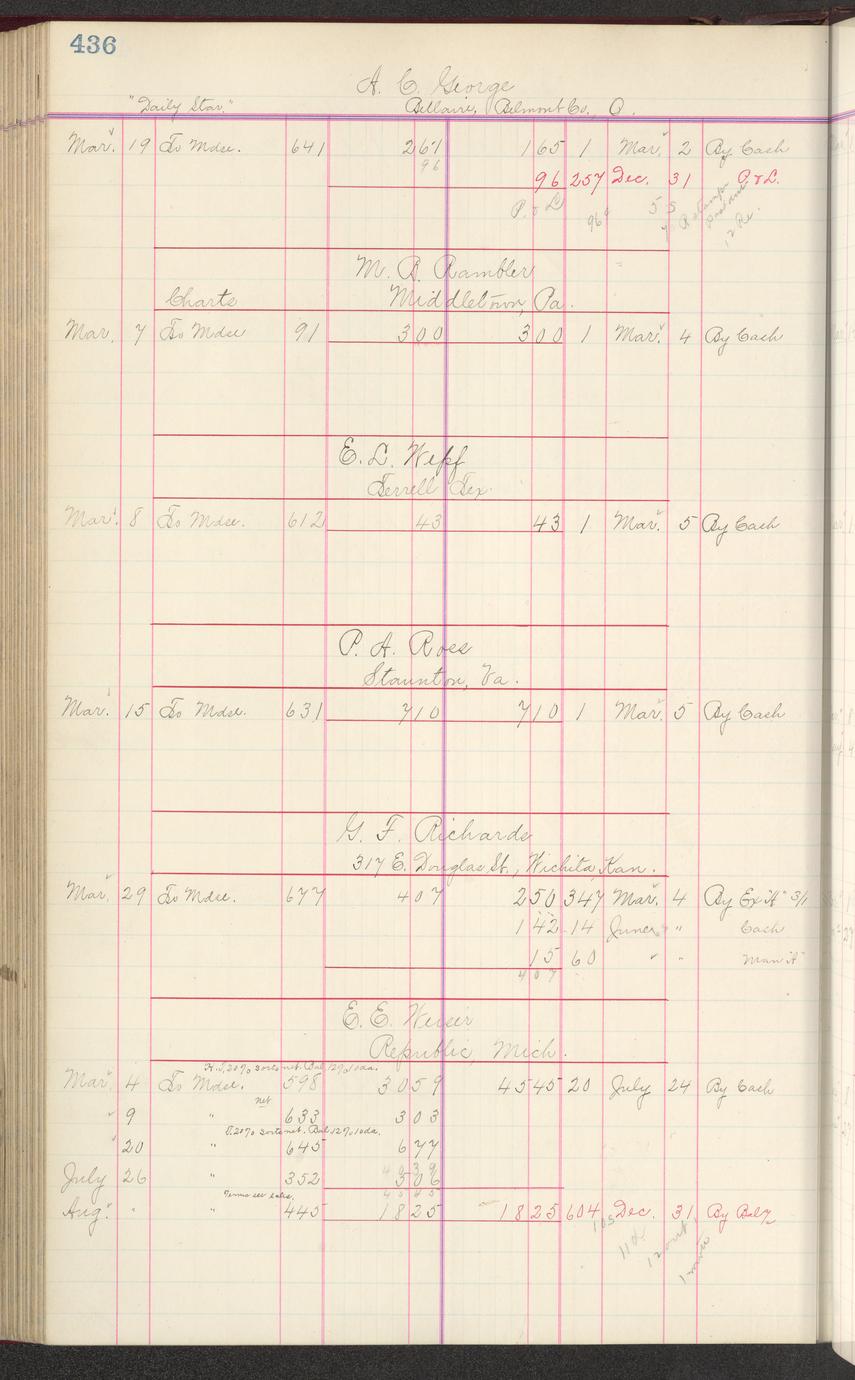 436
A. C. George
"Daily Star." Bellaire, Belmont Co., O.
Mar. 19 To Mdse. 641 261 165 1 Mar. 2 By Cash
96 96 257 Dec. 31 P. & L.
P. & L 96
M. B. Rambler
Charts Middletown, Pa.
Mar. 7 To Mdse 91 300 300 1 Mar. 4 By Cash
E. L. Wepf
Terrell Tex.
Mar. 8 To Mdse. 612 43 43 1 Mar. 5 By Cash
P. A. Ross
Staunton, Va.
Mar. 15 To Mdse. 631 710 710 1 Mar. 5 By Cash
G. F. Richards
317 E. Douglas St., Wichita, Kan.
Mar. 29 To Mdse. 677 407 250 347 Mar. 4 By Ex "A" 3/1
142 14 June " Cash
15 60 " " Man "A"
407
E. E. Weiser
Republic, Mich.
20% sorts net. Bal. 12% 10da.
Mar. 4 To Mdse. 598 3059 4545 20 July 24 By Cash
net
" 9 " 633 303
20% sorts net. Bal. 12% 10da.
" 20 " 645 677
4039
July 26 " 352 506
Terms see sales. 4545
Aug. " " 445 1825 1825 604 Dec. 31 By Bal